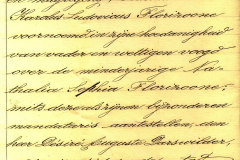 Karolus Ludovicus Florizoone
voornoemd in zijne hoedanigheid
van vader en wettigen voogd
over de minderjarige Na-
thalia Sophia Florizoone,
mits dezen zijnen bijzonderen
mandataris aanstellen, den
heer Désiré Auguste